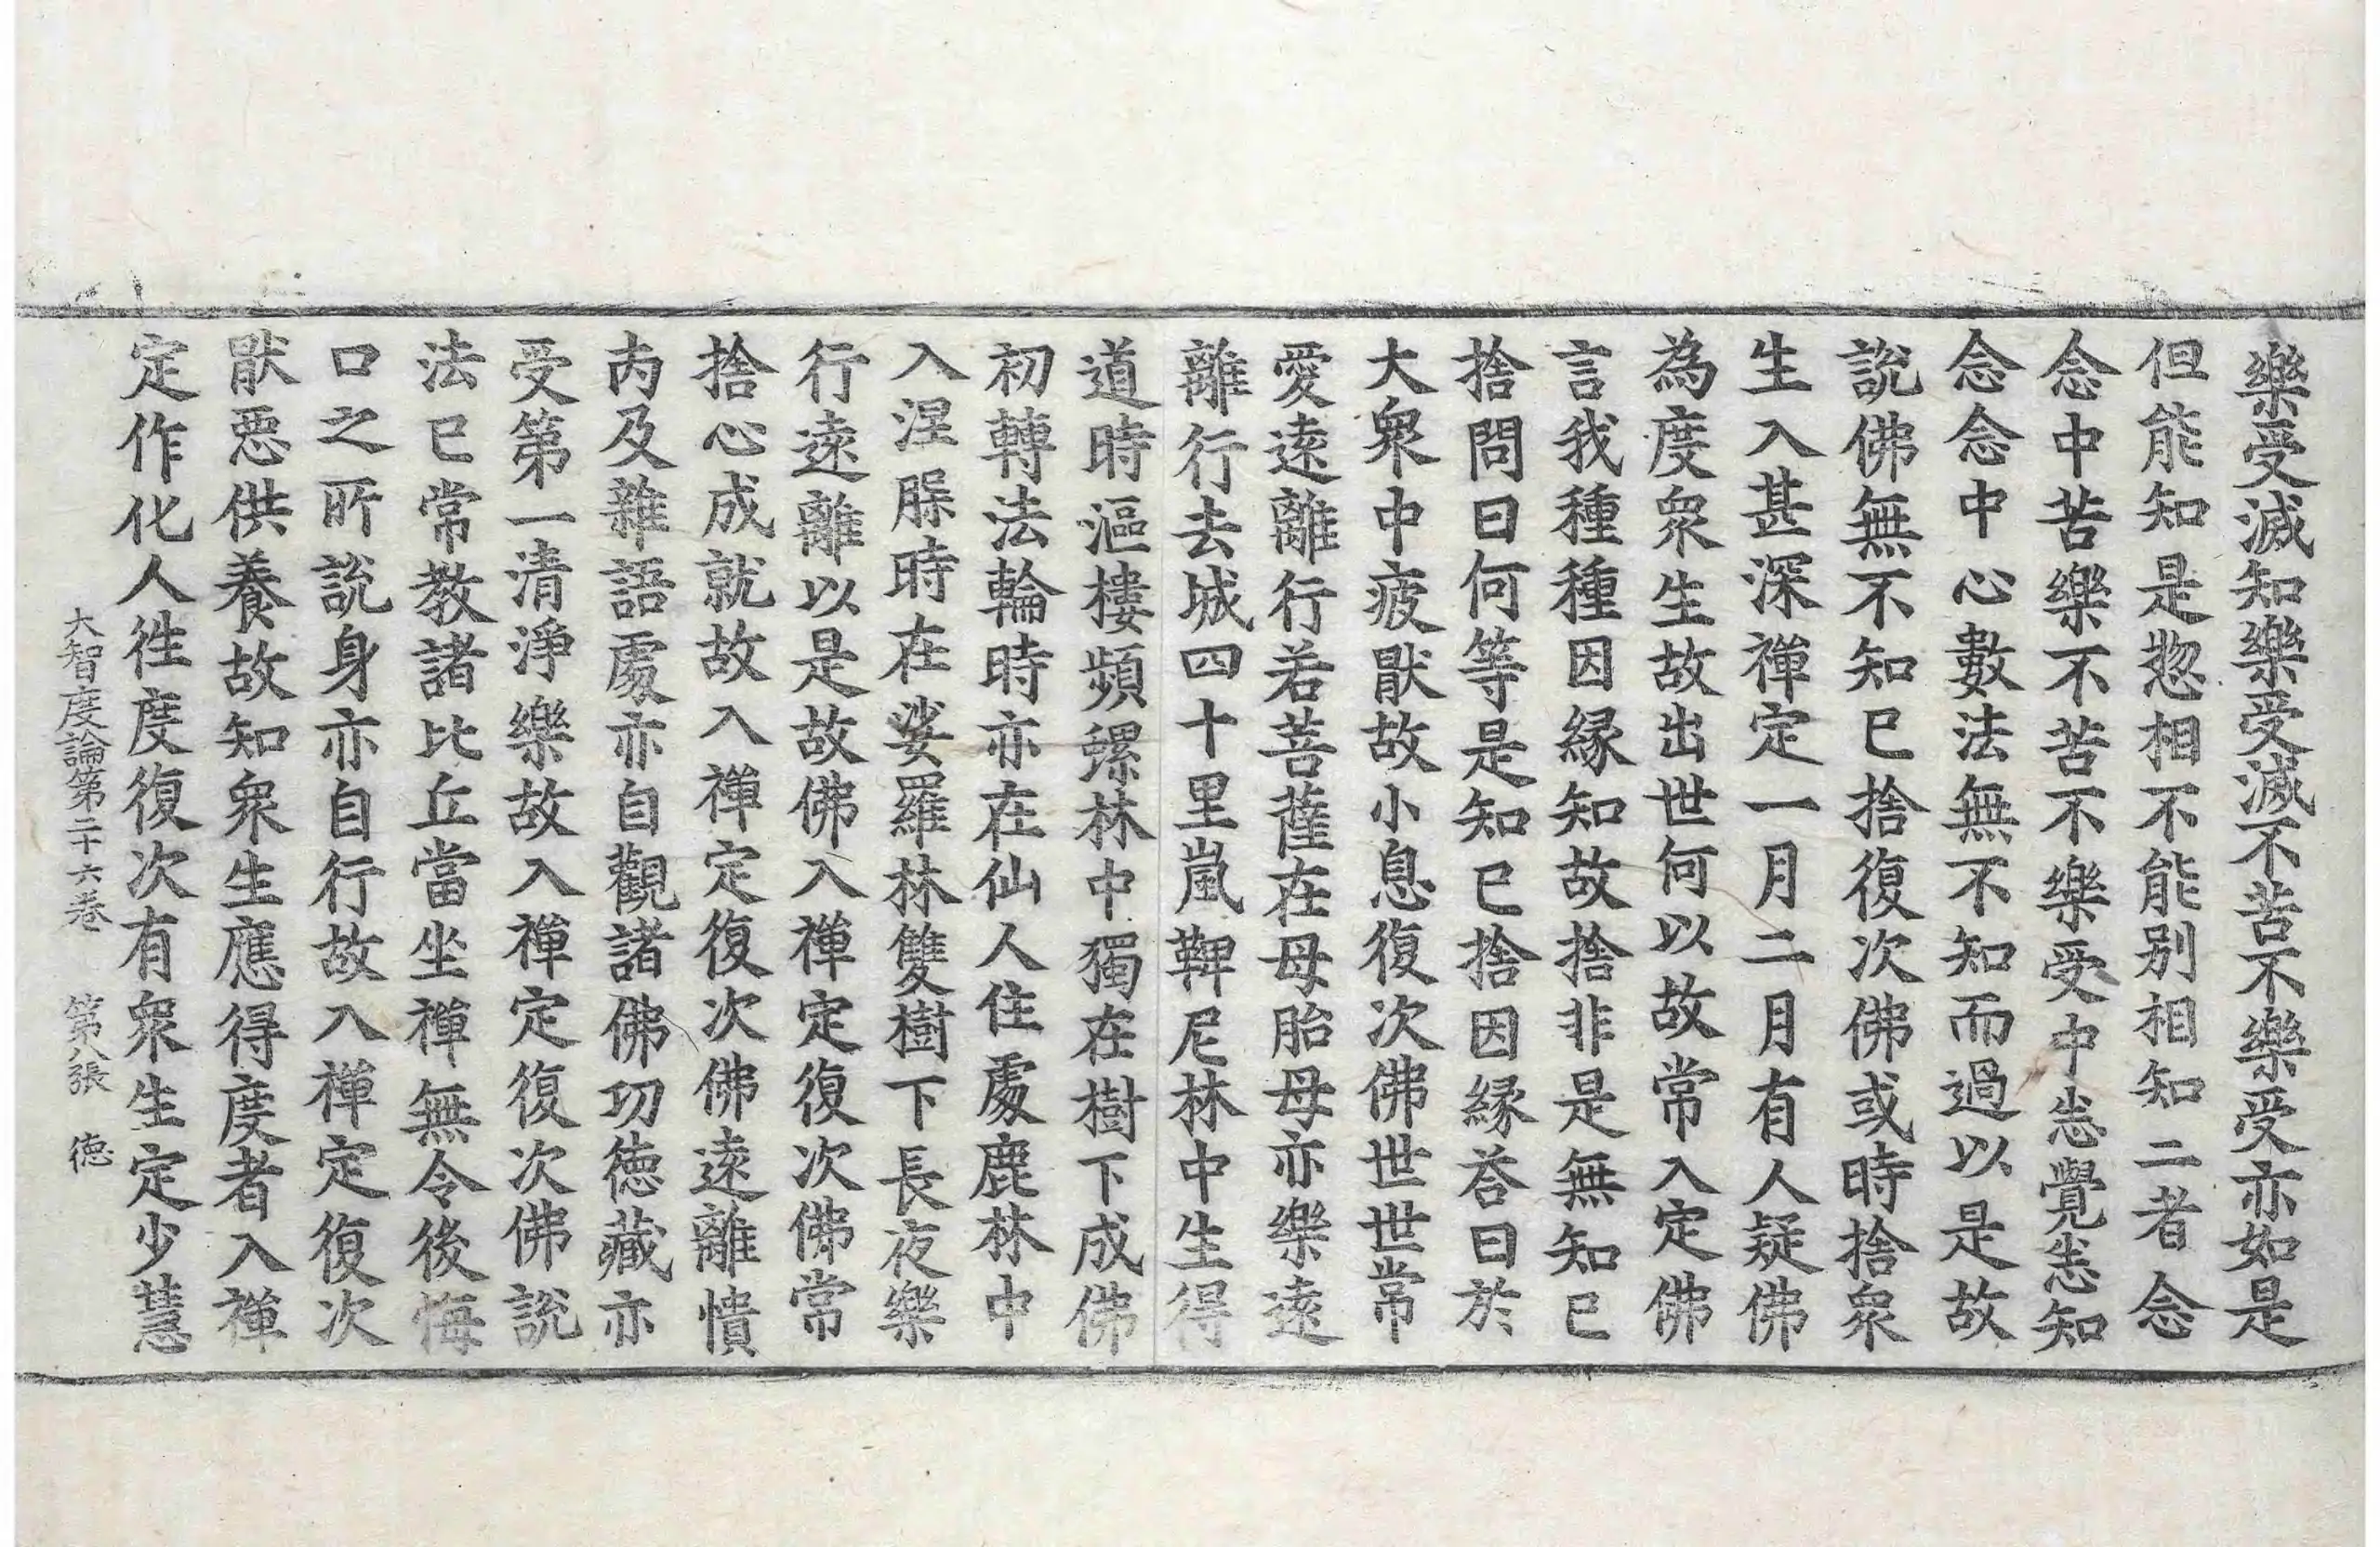 樂受滅知樂受滅不苦不樂受亦如是
但能知是惣相不能別相知二者念
念中苦樂不苦不樂受中悉覺悉知
念念中心數法無不知而過以是故
說佛無不知已捨復次佛或時捨衆
生入甚深禪定一月二月有人疑佛
為度衆生故出世何以故常入定佛
言我種種因緣知故捨非是無知已
捨問曰何等是知已捨因緣荅曰於
大衆中疲猒故小息復次佛世世常
愛遠離行若菩薩在母胎母亦樂遠
離行去城四十里嵐鞞尼林中生得
道時漚樓頻螺林中獨在樹下成佛
初轉法輪時亦在仙人住處鹿林中
入涅槃時在娑羅林雙樹下長夜樂
行遠離以是故佛入禪定復次佛常
捨心成就故入禪定復次佛遠離憒
内及雜語處亦自觀諸佛功德藏亦
受第一清淨樂故入禪定復次佛說
法已常教諸比丘當坐禪無令後悔
口之所說身亦自行故入禪定復次
猒惡供養故知衆生應得度者入禪
定作化人往度復次有衆生定少慧
大智度論第二十六卷 第八張 德